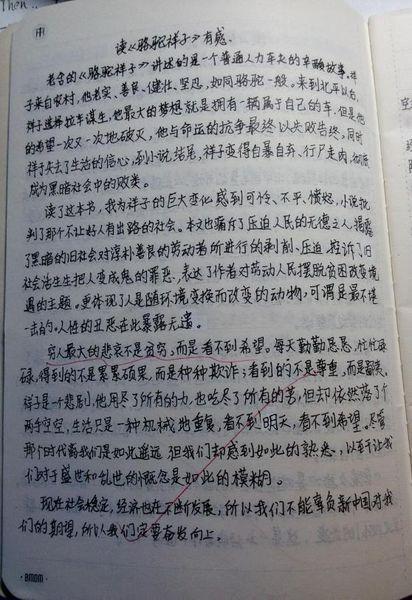 Then..
读《骆驼祥子》有感.
老舍的《骆驼祥子》讲述的是一个普通人力车夫的辛酸故事。祥
子来自农村，他老实、善良、健壮、坚迅，如同骆驼一般。来到北平以后，
祥子选择拉车谋生，他最大的梦想就是拥有一辆属于自己的车，但是他
的希望一次又一次地破灭，他与命运的抗争最终以失败告终。同时
祥子失去了生活的信心，到小说结尾，祥子变得自暴自弃、行尸走肉，彻底
成为黑暗社会中的败类。
读了这本书，我为祥子的巨大变化感到可怜、不平、愤怒，小说批
判了那个不让好人有出路的社会。本文也痛斥了压迫人民的无德之人，揭露
了黑暗的旧社会对淳朴善良的劳动者所进行的剥削、压迫，控诉了旧
社会活生生把人变成鬼的罪恶，表达了作者对劳动人民摆脱贫困改变境
遇的主题。更体现了人是随环境变换而改变的动物，可谓是最不堪
一击的，人性的丑恶在此暴露无遗。
穷人最大的悲哀不是贫穷，而是看不到希望。每天勤勤恳恳、忙忙碌
碌，得到的不是累累硕果，而是种种欺诈；看到的不是尊重，而是鄙夷。
祥子是个悲剧，他用尽了所有的力，也吃尽了所有的苦，但却依然落了个
两手空空，生活只是一种机械地重复，看不到明天，看不到希望。尽管
那个时代离我们是如此遥远，但我们却感到如此的熟悉，以至于让我
们对于盛世和乱世的概念是如此的模糊。
现在社会稳定，经济也在不断发展，所以我们不能辜负新中国对我
们的期望，所以我们一定要奋发向上。
·BMOM·